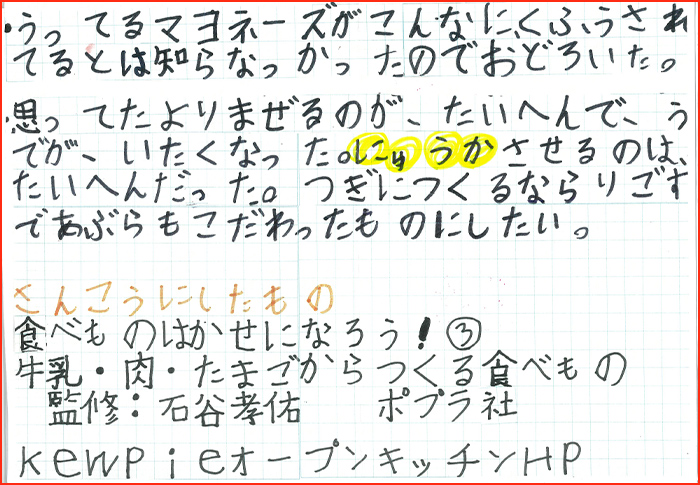 ・うってるマヨネーズがこんなに、くふうされ
てるとは知らなっかったのでおどろいた。
・思ってたよりまぜるのが、たいへんで、う
でが、いたくなった。にゅうかさせるのは、
たいへんだった。つぎにつくるならりごす
であぶらもこだわったものにしたい。
さんこうにしたもの
食べものはかせになろう!③
牛乳・肉・たまごからつくる食べもの
監修:石谷孝佑 ポプラ社
kewpieオープンキッチンHP